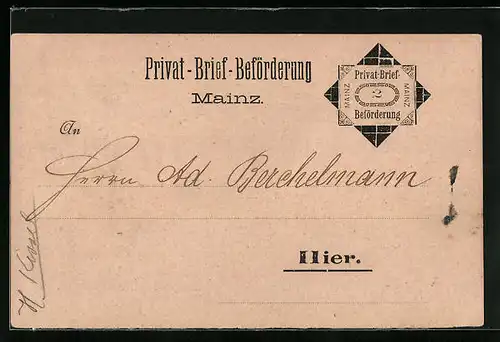 Privat-Brief-Beförderung
Mainz.
Privat-Brief-
MAINZ
2
MAINZ
Beförderung
An
Herrn Ad. Berchelmann
Hier.